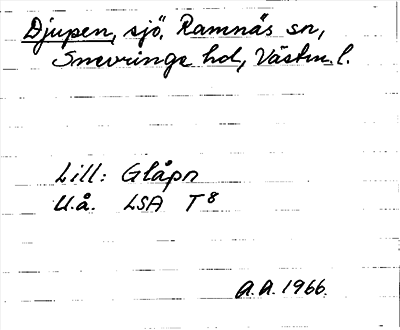 Djupen, sjö, Ramnäs sn,
Snevringe hd, Västm. l.
Lill: Glåpn
U.å. LSA T8
A.A. 1966